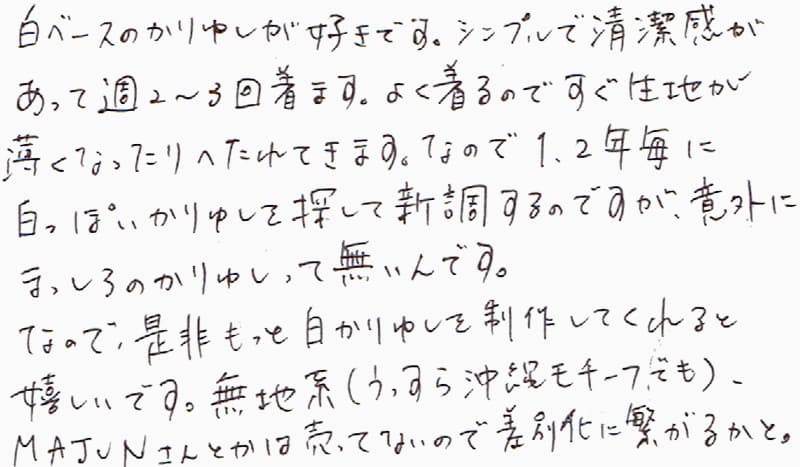 白ベースのかりゆしが好きです。シンプルで清潔感が
あって週2〜3回着ます。よく着るのですぐ生地が
薄くなったりへたれてきます。なので1、2年毎に
白っぽいかりゆしを探して新調するのですが、意外に
まっしろのかりゆしって無いんです。
なので、是非もっと白かりゆしを制作してくれると
嬉しいです。無地系(うっすら沖縄モチーフでも)、
MAJUNさんとかは売ってないので差別化に繋がるかと。